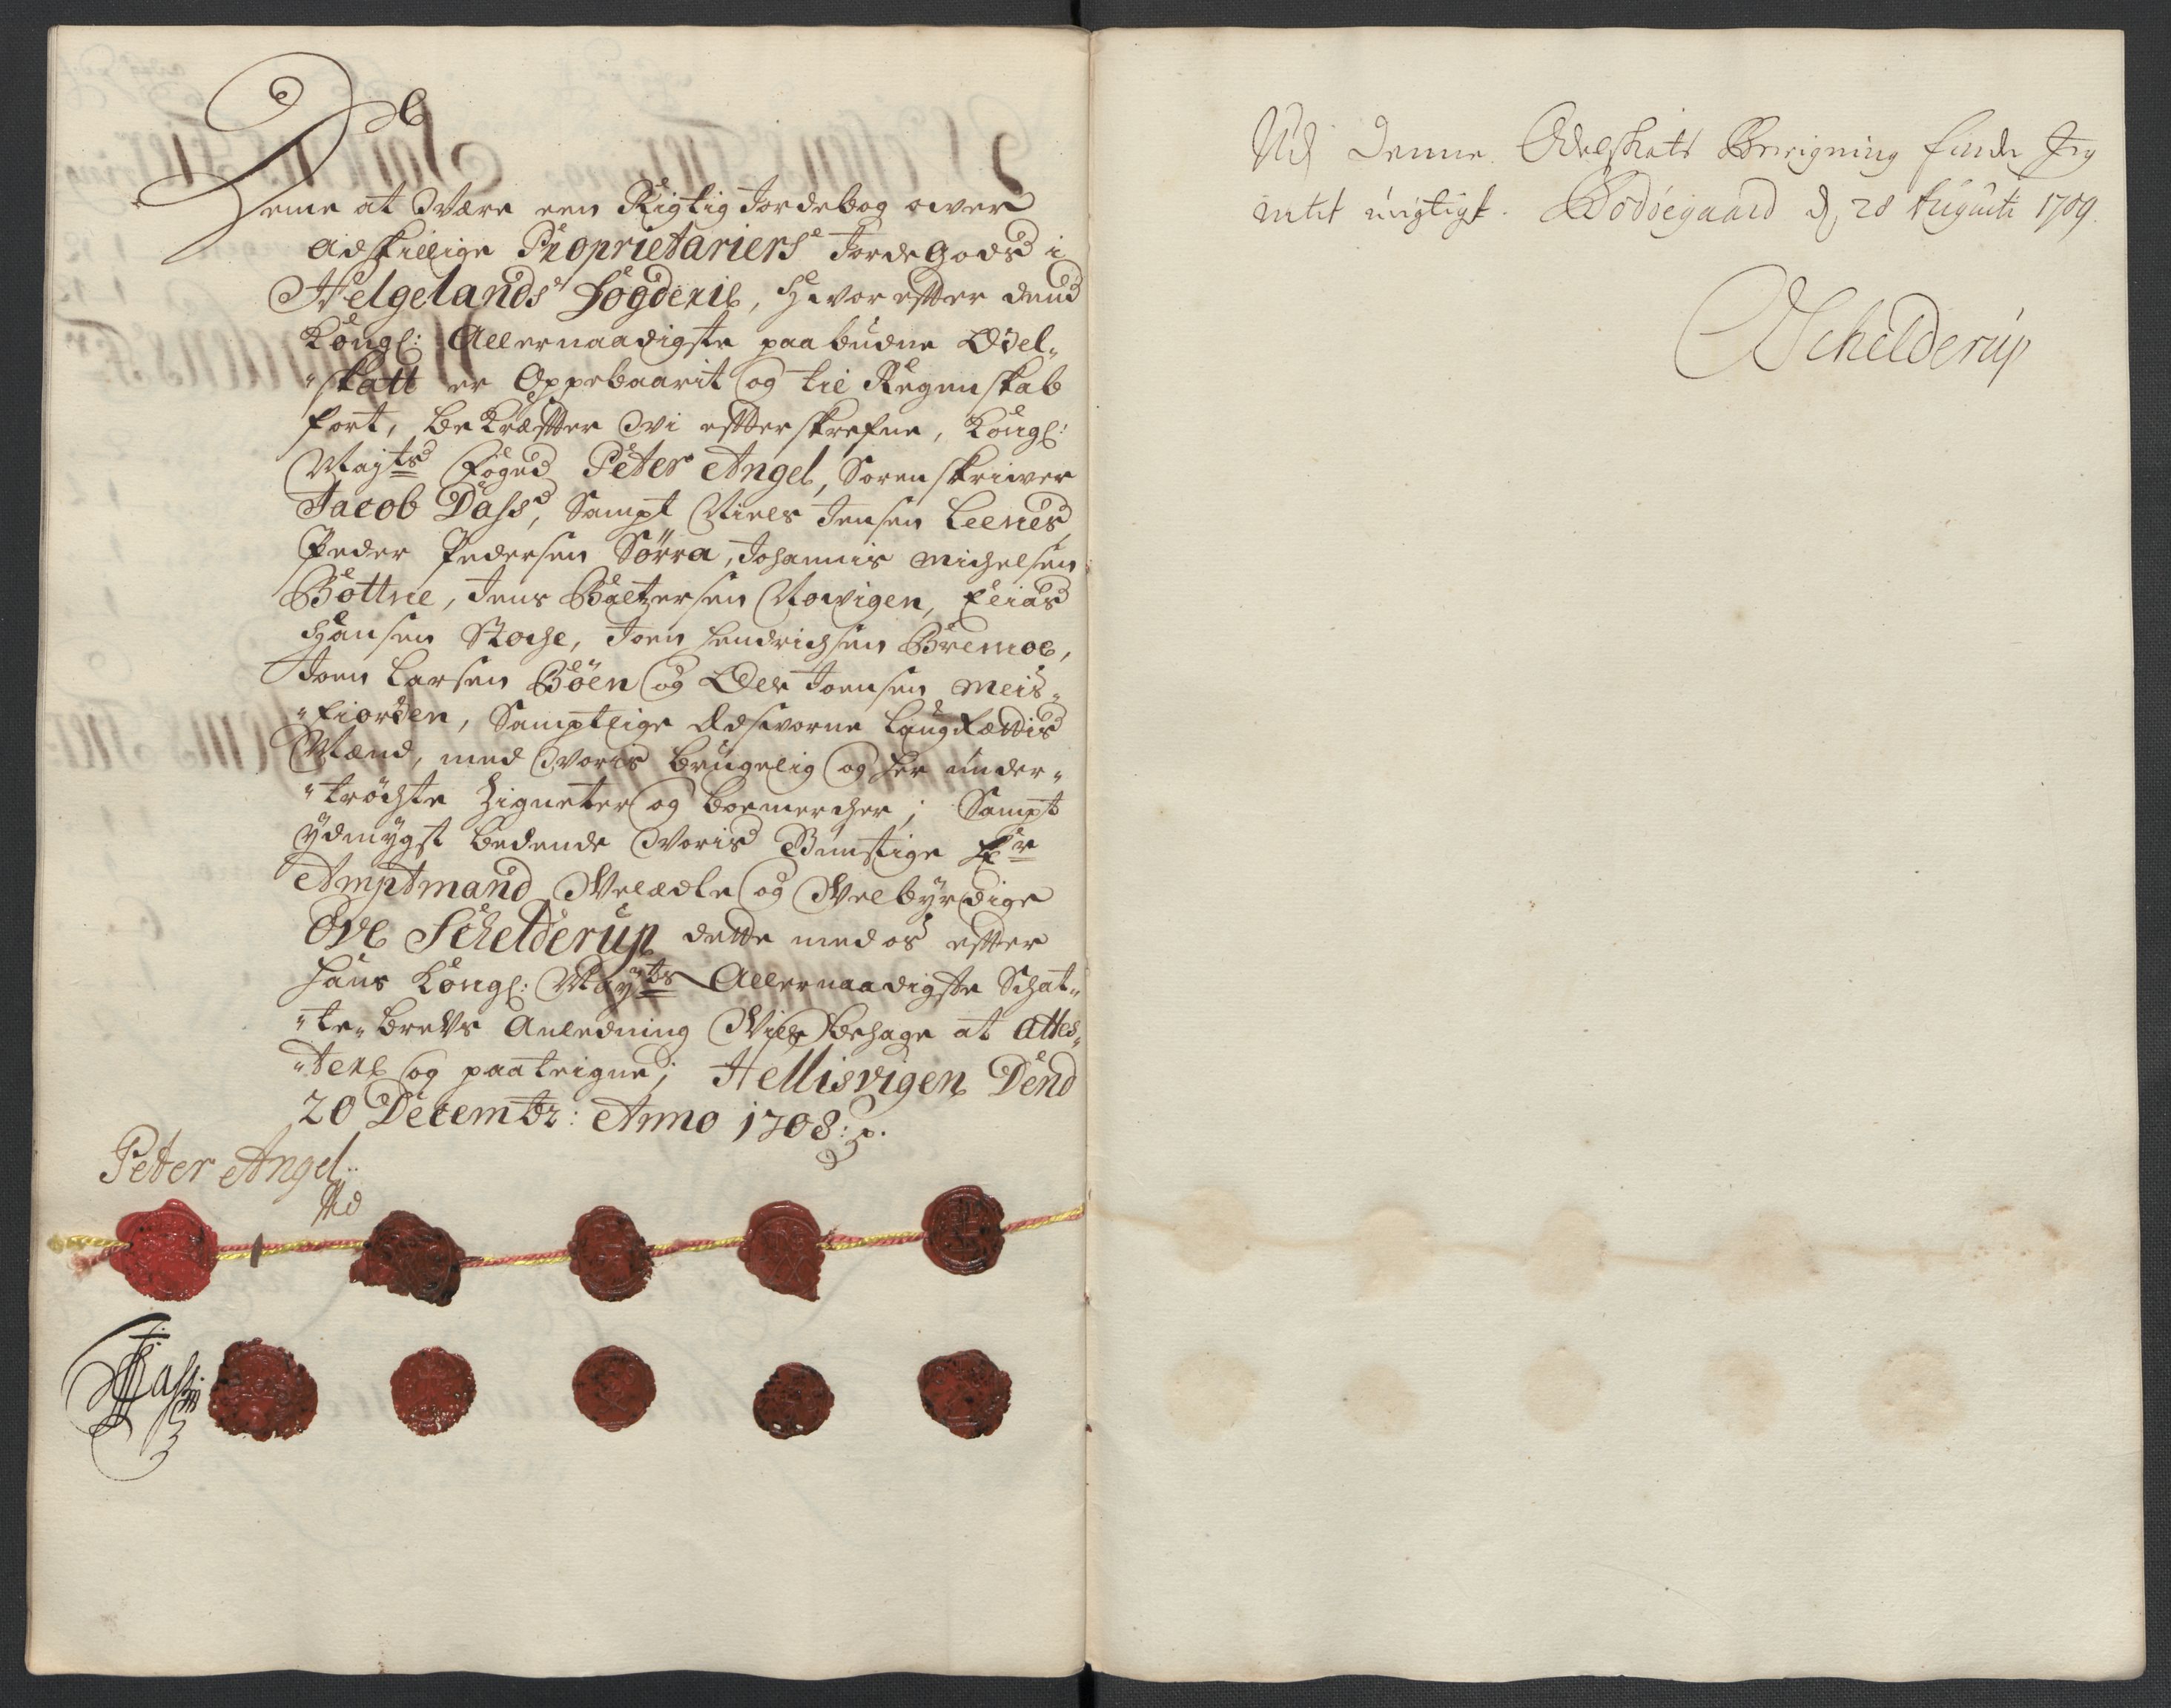 Deme at Være een Rigtig Jordebog ower
adskillige Proprietariers Jorde Gods i
Helgelands Fogderie, Hvor effter dend
Kongl: Allernaadigste paabudne Odel„
„skatt er Oppebaarit og til Regenskab
ført, bekræffter Vi effterskrefne, Kongl:
Mayts Foged Peter Angel, Sorenskriver
Jacob Dass, Sampt Niels Jensen Leenes,
Peder Pedersen Sörra, Johannis Michelsen
Bottne, Jens Baltzersen Novigen, Elias
Hansen Roche, Joen Hendrichsen Bremoe,
Joen Larsen Böen og Ole Joensen Meis„
„fiorden, Samptlige Edsvorne Laugrættis
Mænd, med Voris brugelig og her under„
„tröchte Zigneter og boemercher; Sampt
ydmygst bedende Voris Gunstige Hr
Amptmand Velædle og Velbyrdige
Ove Schelderup dette med os effter
Hans Kongl: Mayts Allernaadigste Schat„
„te„brevs Anledning Ville behage at attes„
„tere og paateigne; Hellisvigen Dend
20 Decembr: Anno 1708:
Peter Angel
Dass
Ud denne Odelskats Berigning finder Jeg
intet urigtigt. Bodöegaard d, 28 Augusti 1709.
OSchelderup